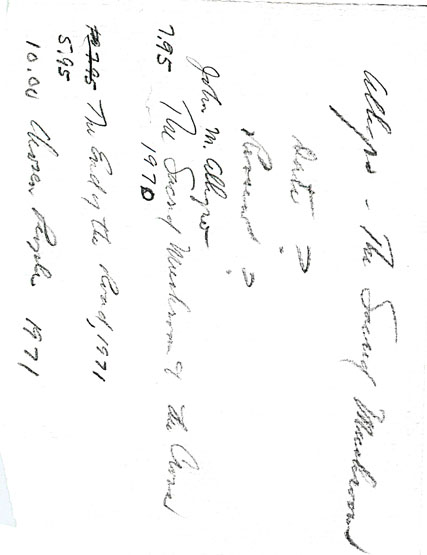 Allegro - The Sacred Mushroom
Date ?
Personal ?
John M. Allegro
7.95 The Sacred Mushroom & the Cross
1970
7.95 The End of the Road, 1971
5.95
10.00 Chosen People 1971